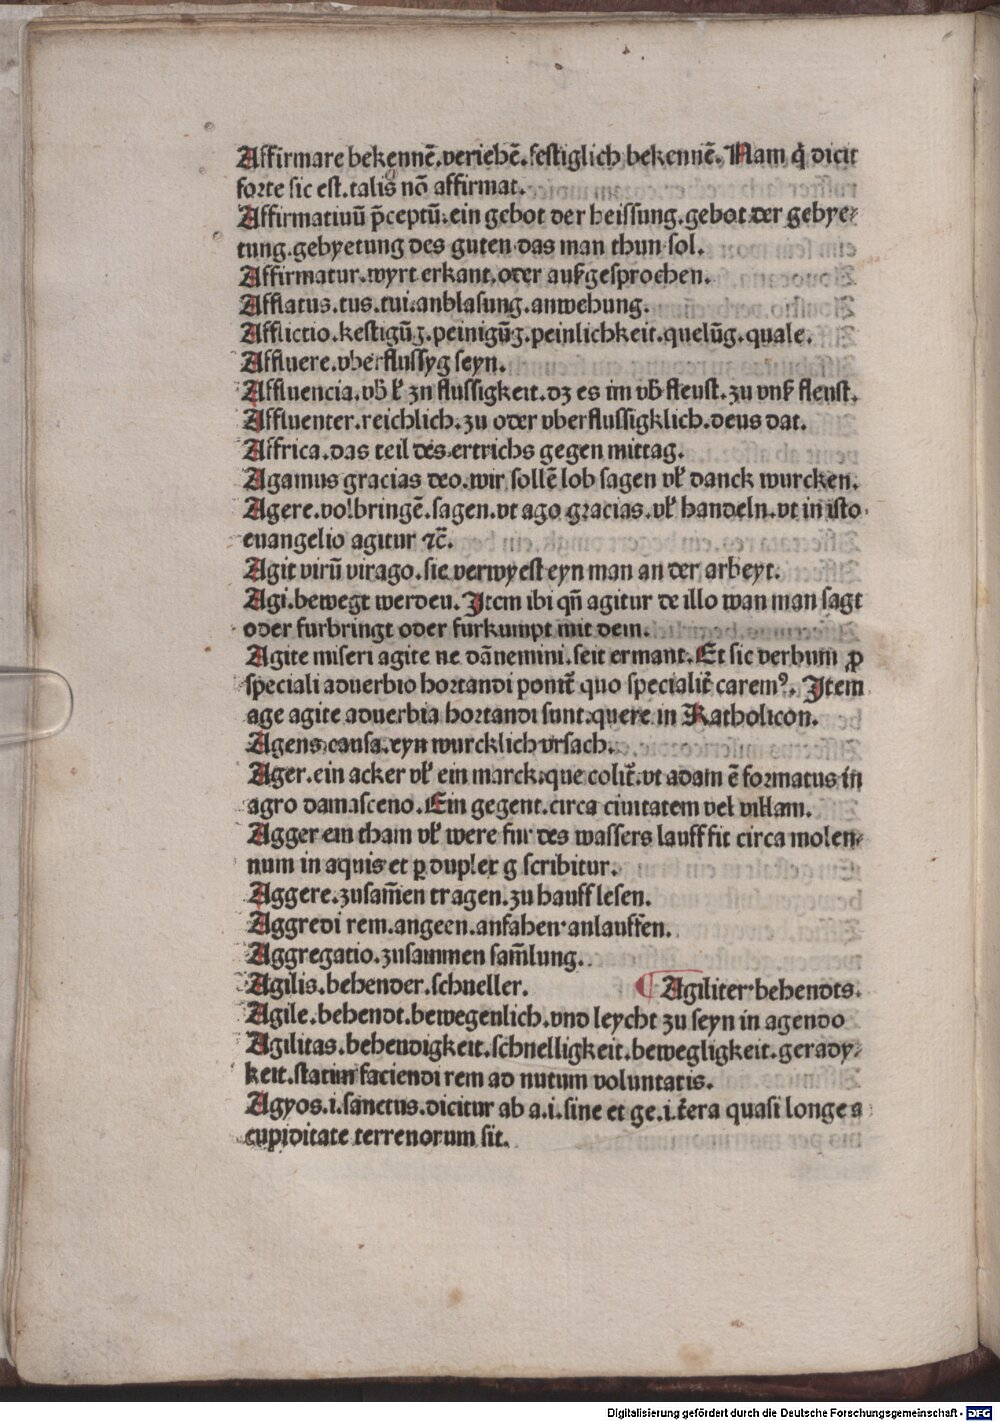 Affirmare bekennē.veriehē.festiglich bekennē. Nam q̄ dicit
forte sic est.talis nō affirmat.
Affirmatiuū p̄ceptū.ein gebot der heissung.gebot der gebye⸗
tung.gebyetung des guten das man thun sol.
Affirmatur.wyrt erkant.oder außgesprochen.
Afflatus.tus.tui.anblasung.anwehung.
Afflictio.kestigūg.peinigūg.peinlichkeit.quelūg.quale.
Affluere.vberflussyg seyn.
Affluencia.vb̄ vn̄ zu flussigkeit.dz es im vb̄ fleust.zu vnd̄ fleust.
Affluenter.reichlich.zu oder vberflussigklich.deus dat.
Affrica.das teil des ertrichs gegen mittag.
Agamus gracias deo.wir sollē lob sagen vn̄ danck wurcken.
Agere.volbringē.sagen.vt ago gracias.vn̄ handeln.vt in isto
euangelio agitur ⁊c̄.
Agit virū virago.sie verwyest eyn man an der arbeyt.
Agi.bewegt werden. Item ibi qn̄ agitur de illo wan man sagt
oder furbringt oder furkumpt mit dem.
Agite miseri agite ne dānemini.seit ermant. Et sic verbum ꝓ
speciali aduerbio hortandi ponit̄ quo specialit̄ caremꝰ. Item
age agite aduerbia hortandi sunt.quere in Katholicon.
Agens causa.eyn wurcklich vrsach.
Ager.ein acker vn̄ ein marck.que colit̄.vt adam ē formatus in
agro damasceno. Ein gegent.circa ciuitatem vel villam.
Agger ein tham vn̄ were fur des wassers lauff fit circa molen⸗
num in aquis et ꝑ duplex g scribitur.
Aggere.zusam̄en tragen.zu hauff lesen.
Aggredi rem.angeen.anfahen.anlauffen.
Aggregatio.zusammen sam̄lung.
Agilis.behender.schneller. ¶ Agiliter.behendts.
Agile.behendt.bewegenlich.vnd leycht zu seyn in agendo
Agilitas.behendigkeit.schnelligkeit.bewegligkeit.gerady⸗
keit.statim faciendi rem ad nutum voluntatis.
Agyos.i.sanctus.dicitur ab a.i.sine et ge.i.t̄era quasi longe a
cupiditate terrenorum sit.
Digitalisierung gefördert durch die Deutsche Forschungsgemeinschaft - DFG